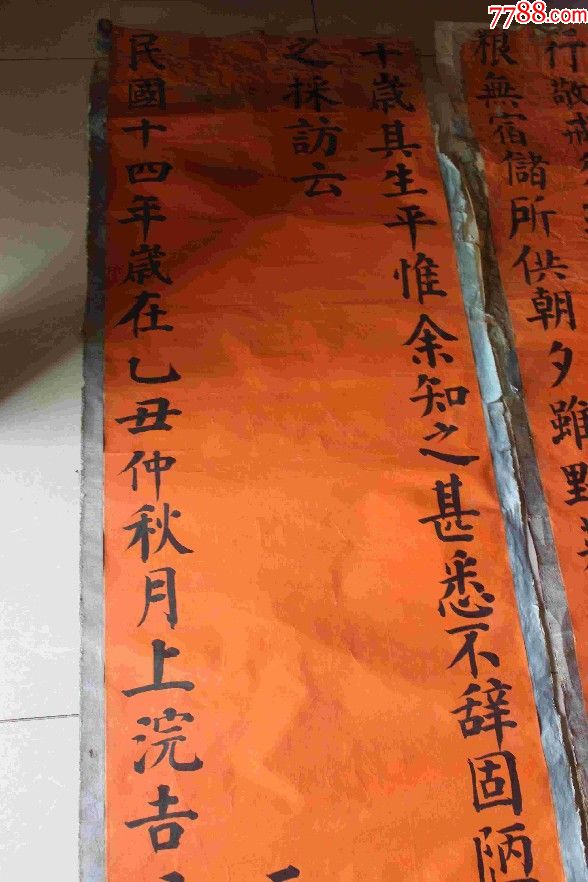 7788.com
行敬戒
粮無宿儲所供朝夕雖野
歲其生平惟余知之甚悉不辭固陋
之採訪云
民國十四年歲在乙丑仲秋月上浣吉